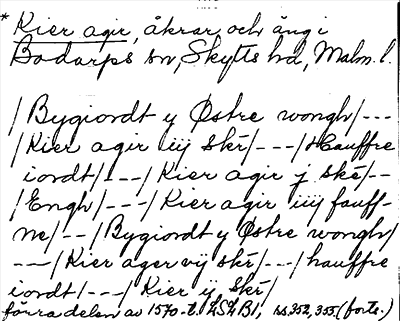 * Kier agir, åkrar och äng i
Bodarps sn, Skytts hd, Malm. l.
/Bygiordt y Østre wongh/---
/Kier agir iij skè/---/Hauffre
iordt/---/Kier agir j skè/--
/Engh/---/Kier agir iiij fauff-
ne/--/Bygiordt y Østre wongh/
---/Kier ager vij skè/---/hauffre
iordt/---/Kier ij skè/
förra delen av 1570-t. LSLB1, ss. 352, 355. (forts.)